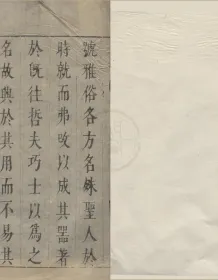 號雅俗各方名姝聖人於
時就而弗改以成其器著
於旣往哲夫巧士以為之
名故輿於其用而不易其